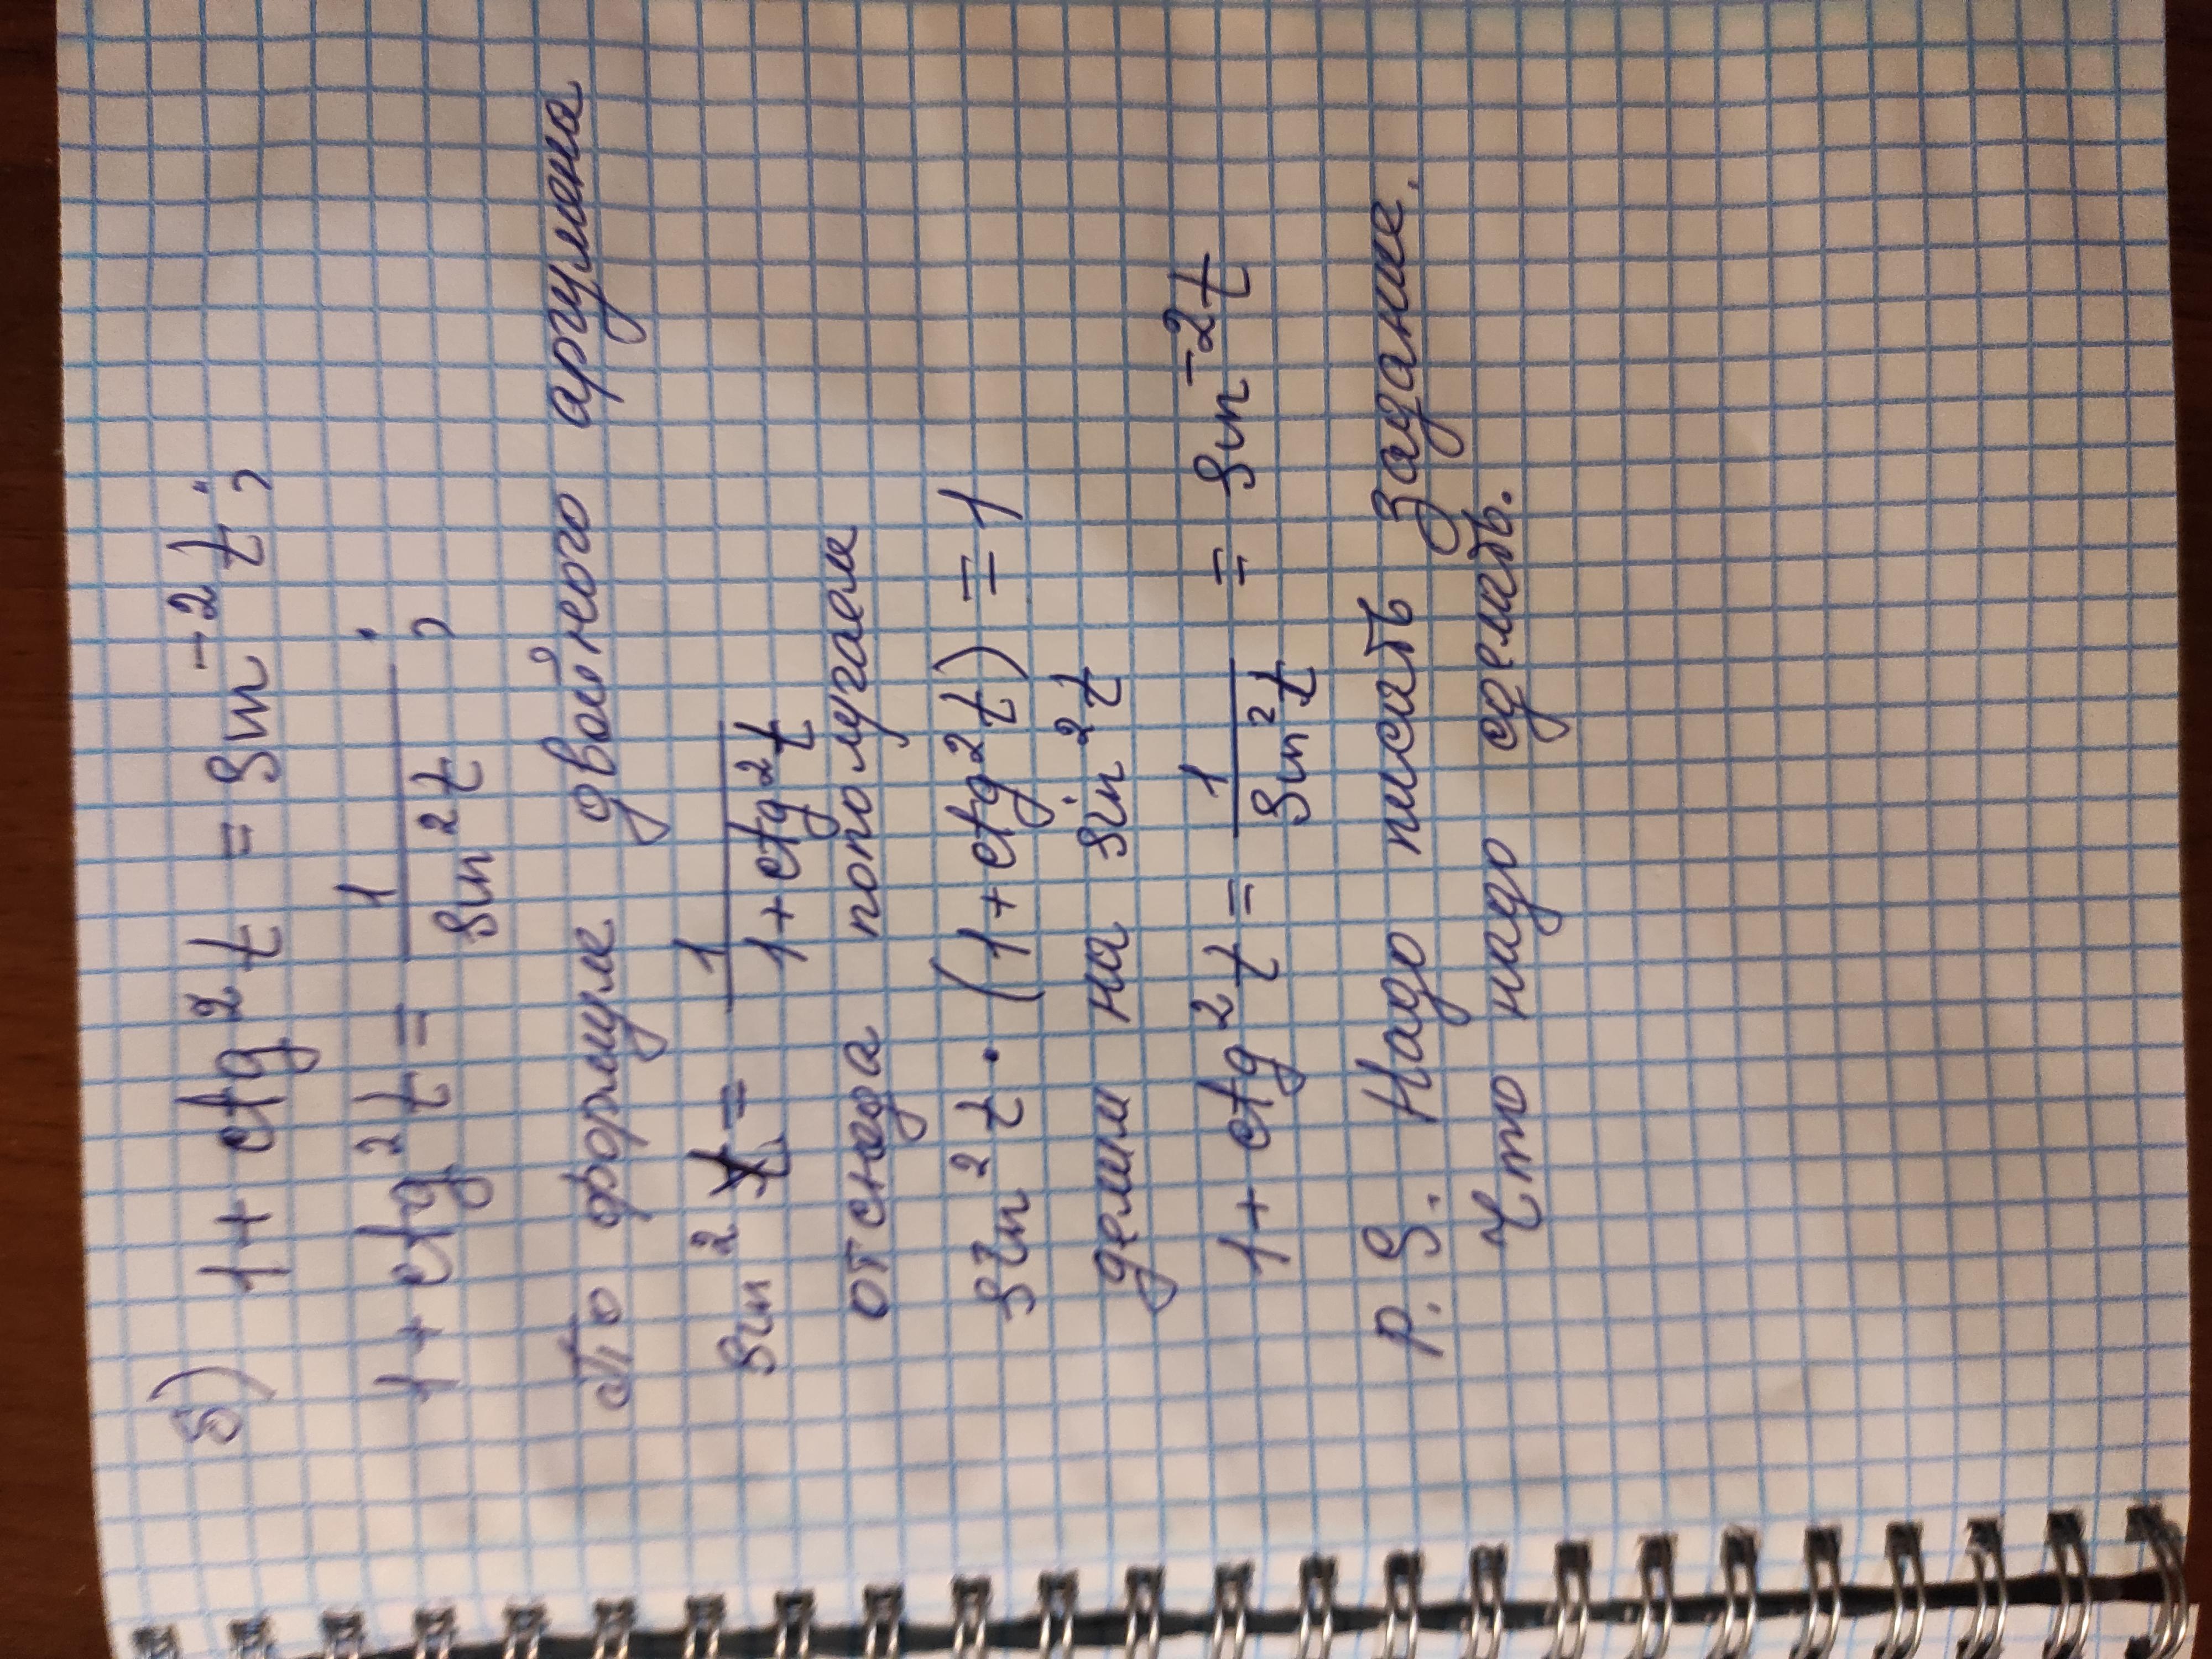 б) 1 + ctg²t = sin⁻²t;
1 + ctg²t = 1/sin²t;
По формуле двойного аргумена
sin²t = 1/(1 + ctg²t)
отсюда пополугаем
sin²t · (1 + ctg²t) = 1
делим на sin²t
1 + ctg²t = 1/sin²t = sin⁻²t
P. S. Надо писать задание.
Что надо сделать.